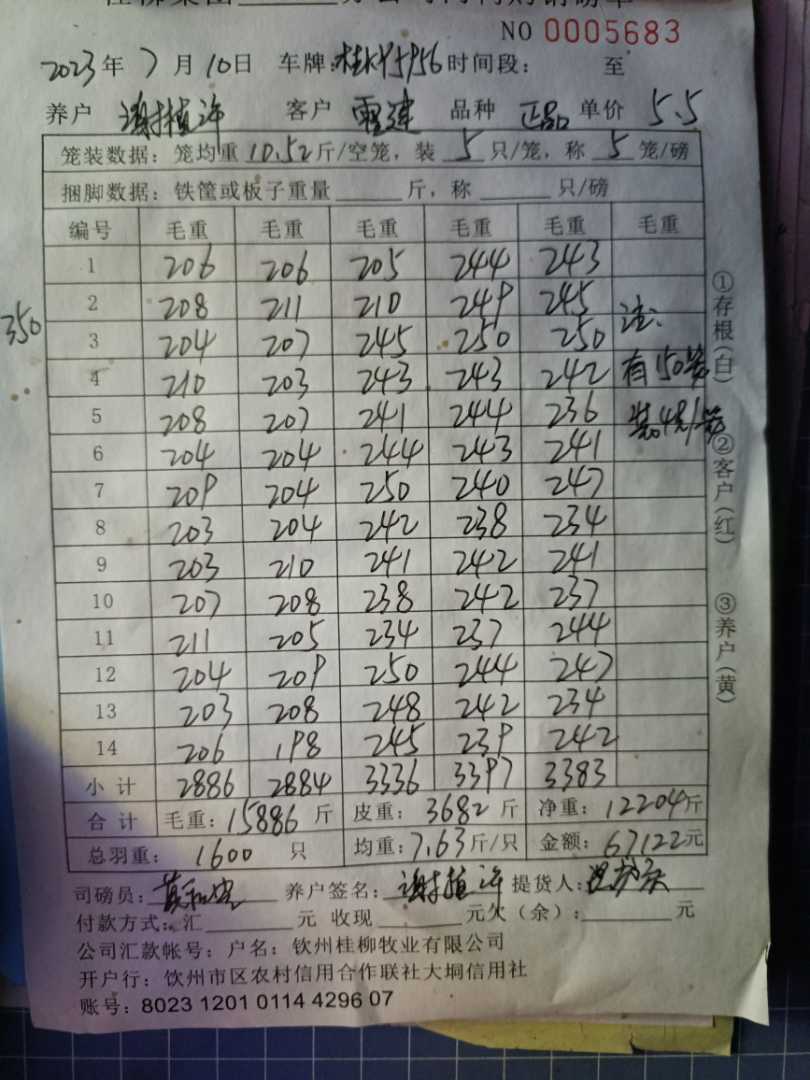 NO 0005683
2023年 7 月 10日 车牌: 时间段: 至
养户 谢植许 客户 雷建 品种 正品 单价 5.5
笼装数据: 笼均重 10.52 斤/空笼, 装 5 只/笼, 称 5 笼/磅
捆脚数据: 铁筐或板子重量 斤, 称 只/磅
编号 毛重 毛重 毛重 毛重 毛重 毛重
1 206 206 205 244 243
2 208 211 210 249 245 注:
350
3 204 207 245 250 250
4 210 203 243 243 242 有150笼
5 208 207 241 244 236 装4只/笼
6 204 204 244 243 241
7 209 204 250 240 247
8 203 204 242 238 234
9 203 210 241 242 241
10 207 208 238 242 237
11 211 205 234 237 244
12 204 209 250 244 247
13 203 208 248 242 234
14 206 198 245 239 242
小计 2886 2884 3336 3397 3383
合计 毛重: 15886 斤 皮重: 3682 斤 净重: 12204斤
总羽重: 1600 只 均重: 7.63斤/只 金额: 67122元
司磅员: 养户签名: 谢植许 提货人:
付款方式: 汇 元 收现 元欠(余): 元
公司汇款帐号: 户名: 钦州桂柳牧业有限公司
开户行: 钦州市区农村信用合作联社大垌信用社
账号: 8023 1201 0114 4296 07
①存根(白)
②客户(红)
③养户(黄)